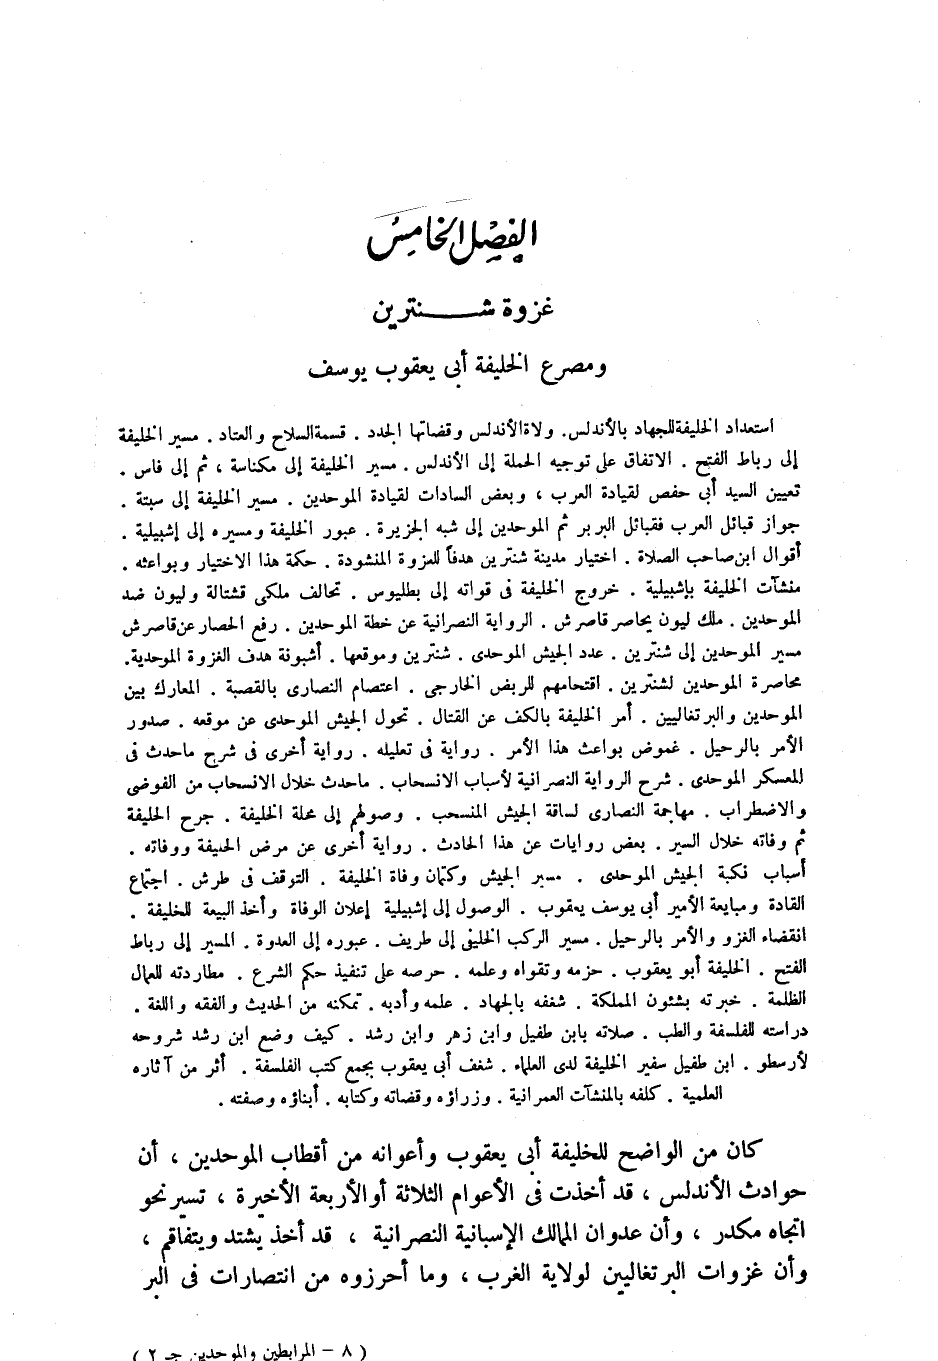 الفصل الخامس
غزوة شنترين
ومصرع الخليفة أبى يعقوب يوسف
استعداد الخليفة للجهاد بالأندلس. ولاة الأندلس وقضاتها الجدد . قسمة السلاح والعتاد . مسير الخليفة
إلى رباط الفتح . الاتفاق على توجيه الحملة إلى الأندلس . مسير الخليفة إلى مكناسة ، ثم إلى فاس .
تعيين السيد أبى حفص لقيادة العرب ، وبعض السادات لقيادة الموحدين . مسير الخليفة إلى سبتة .
جواز قبائل العرب فقبائل البربر ثم الموحدين إلى شبه الجزيرة . عبور الخليفة ومسيره إلى إشبيلية .
أقوال ابن صاحب الصلاة . اختيار مدينة شنترين هدفاً للغزوة المنشودة . حكمة هذا الاختيار وبواعثه .
منشآت الخليفة بإشبيلية . خروج الخليفة فى قواته إلى بطليوس . تحالف ملكى قشتالة وليون ضد
الموحدين . ملك ليون يحاصر قاصرش . الرواية النصرانية عن خطة الموحدين . رفع الحصار عن قاصرش
مسير الموحدين إلى شنترين . عدد الجيش الموحدى . شنترين وموقعها . أشبونة هدف الغزوة الموحدية.
محاصرة الموحدين لشنترين . اقتحامهم للربض الخارجى . اعتصام النصارى بالقصبة . المعارك بين
الموحدين والبرتغاليين . أمر الخليفة بالكف عن القتال . تحول الجيش الموحدى عن موقعه . صدور
الأمر بالرحيل . غموض بواعث هذا الأمر . رواية فى تعليله . رواية أخرى فى شرح ماحدث فى
المعسكر الموحدى . شرح الرواية النصرانية لأسباب الانسحاب . ماحدث خلال الانسحاب من الفوضى
والاضطراب . مهاجمة النصارى لساقة الجيش المنسحب . وصولهم إلى محلة الخليفة . جرح الخليفة
ثم وفاته خلال السير . بعض روايات عن هذا الحادث . رواية أخرى عن مرض الخليفة ووفاته .
أسباب نكبة الجيش الموحدى . مسير الجيش وكتمان وفاة الخليفة . التوقف فى طرش . اجتماع
القادة ومبايعة الأمير أبى يوسف يعقوب . الوصول إلى إشبيلية إعلان الوفاة وأخذ البيعة للخليفة .
انقضاء الغزو والأمر بالرحيل . مسير الركب الخليفى إلى طريف . عبوره إلى العدوة . المسير إلى رباط
الفتح . الخليفة أبو يعقوب . حزمه وتقواه وعلمه . حرصه على تنفيذ حكم الشرع . مطاردته للعمال
الظلمة . خبرته بشئون المملكة . شغفه بالجهاد . علمه وأدبه . تمكنه من الحديث والفقه واللغة .
دراسته للفلسفة والطب . صلاته بابن طفيل وابن زهر وابن رشد . كيف وضع ابن رشد شروحه
لأرسطو . ابن طفيل سفير الخليفة لدى العلماء . شغف أبى يعقوب بجمع كتب الفلسفة . أثر من آثاره
العلمية . كلفه بالمنشآت العمرانية . وزراؤه وقضاته وكتابه . أبناؤه وصفته .
كان من الواضح للخليفة أبى يعقوب وأعوانه من أقطاب الموحدين ، أن
حوادث الأندلس ، قد أخذت فى الأعوام الثلاثة أوالأربعة الأخيرة ، تسير نحو
اتجاه مكدر ، وأن عدوان الممالك الإسبانية النصرانية ، قد أخذ يشتد ويتفاقم ،
وأن غزوات البرتغاليين لولاية الغرب ، وما أحرزوه من انتصارات فى البر
( ٨ – المرابطين والموحدين جـ ٢ )